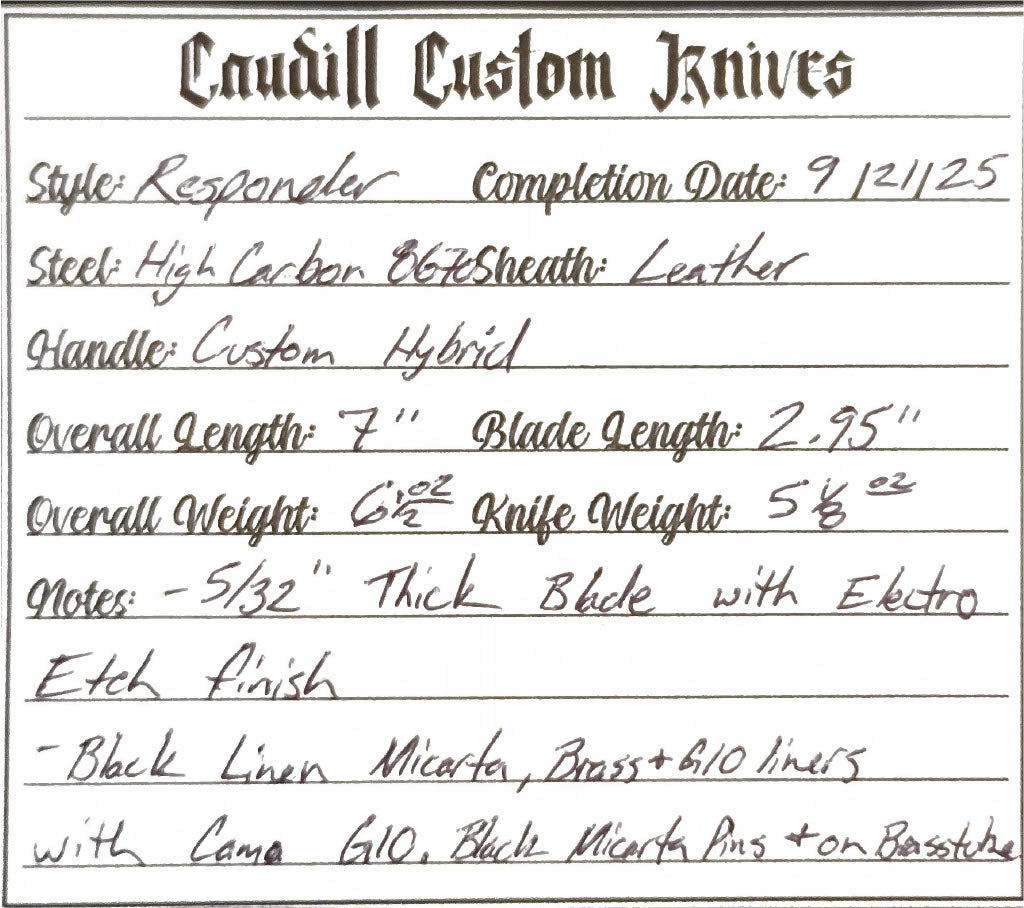 Caudill Custom Knives
Style: Responder Completion Date: 9/21/25
Steel: High Carbon 8670 Sheath: Leather
Handle: Custom Hybrid
Overall Length: 7" Blade Length: 2.95"
Overall Weight: 6 1/2 oz Knife Weight: 5 1/8 oz
Notes: - 5/32" Thick Blade with Electro
Etch finish
- Black Linen Micarta, Brass + G10 liners
with Camo G10. Black Micarta Pins + on Brasstube